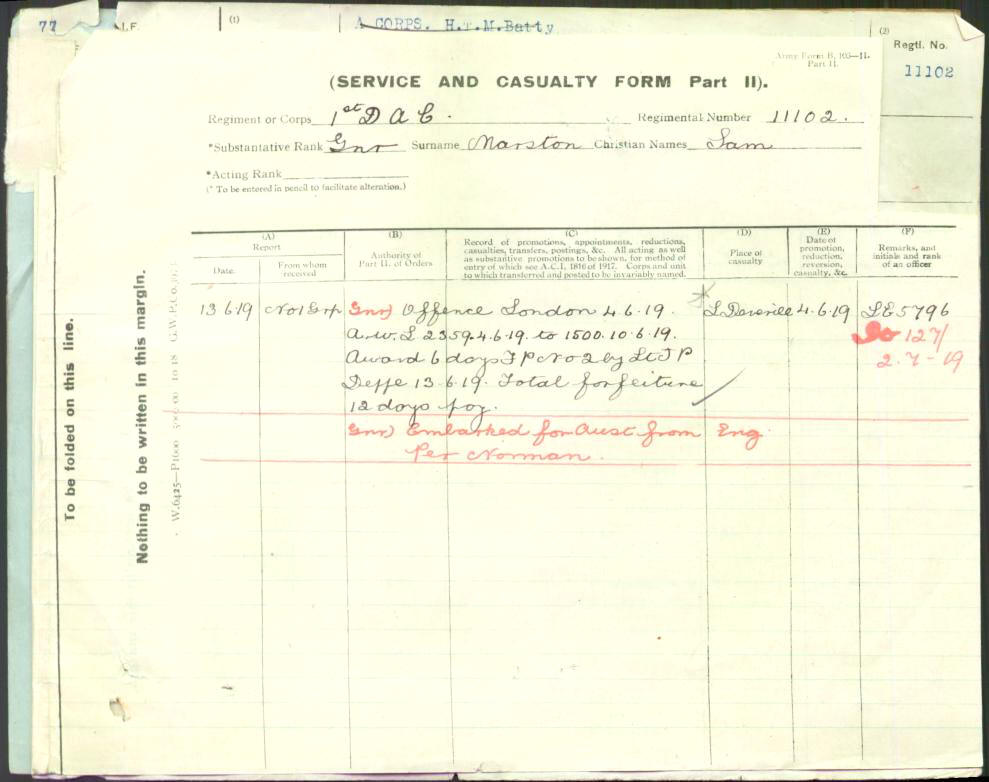 77
I.F.
(1)
A CORPS. H.T.M.Batty
(2)
Regtl. No.
11102
Army Form B. 103—II.
Part II.
(SERVICE AND CASUALTY FORM Part II).
Regiment or Corps 1st D A C. Regimental Number 11102.
*Substantative Rank Gnr Surname Marston Christian Names Sam
*Acting Rank
(* To be entered in pencil to facilitate alteration.)
To be folded on this line.
Nothing to be written in this margin.
W.6425—P1600 10 18 G.W.P.Co.
(A)
Report
Date.
From whom received
(B)
Authority of Part II. of Orders
(C)
Record of promotions, appointments, reductions,
casualties, transfers, postings, &c. All acting as well
as substantive promotions to be shown, for method of
entry of which see A.C.I. 1816 of 1917. Corps and unit
to which transferred and posted to be invariably named.
(D)
Place of casualty
(E)
Date of promotion, reduction, reversion, casualty, &c.
(F)
Remarks, and initials and rank of an officer
13 6.19 No 1 Grp Gnr) Offence London 4.6.19. L Deverill 4.6.19 LE5796
A.W.L 2359.4.6.19. to 1500.10.6.19. 127/
Award 6 days F P No 2 by Lt J P 2.7-19
13.6.19. Total forfeiture
12 days pay.
Gnr) Embarked for Aust from Eng
Per Norman.